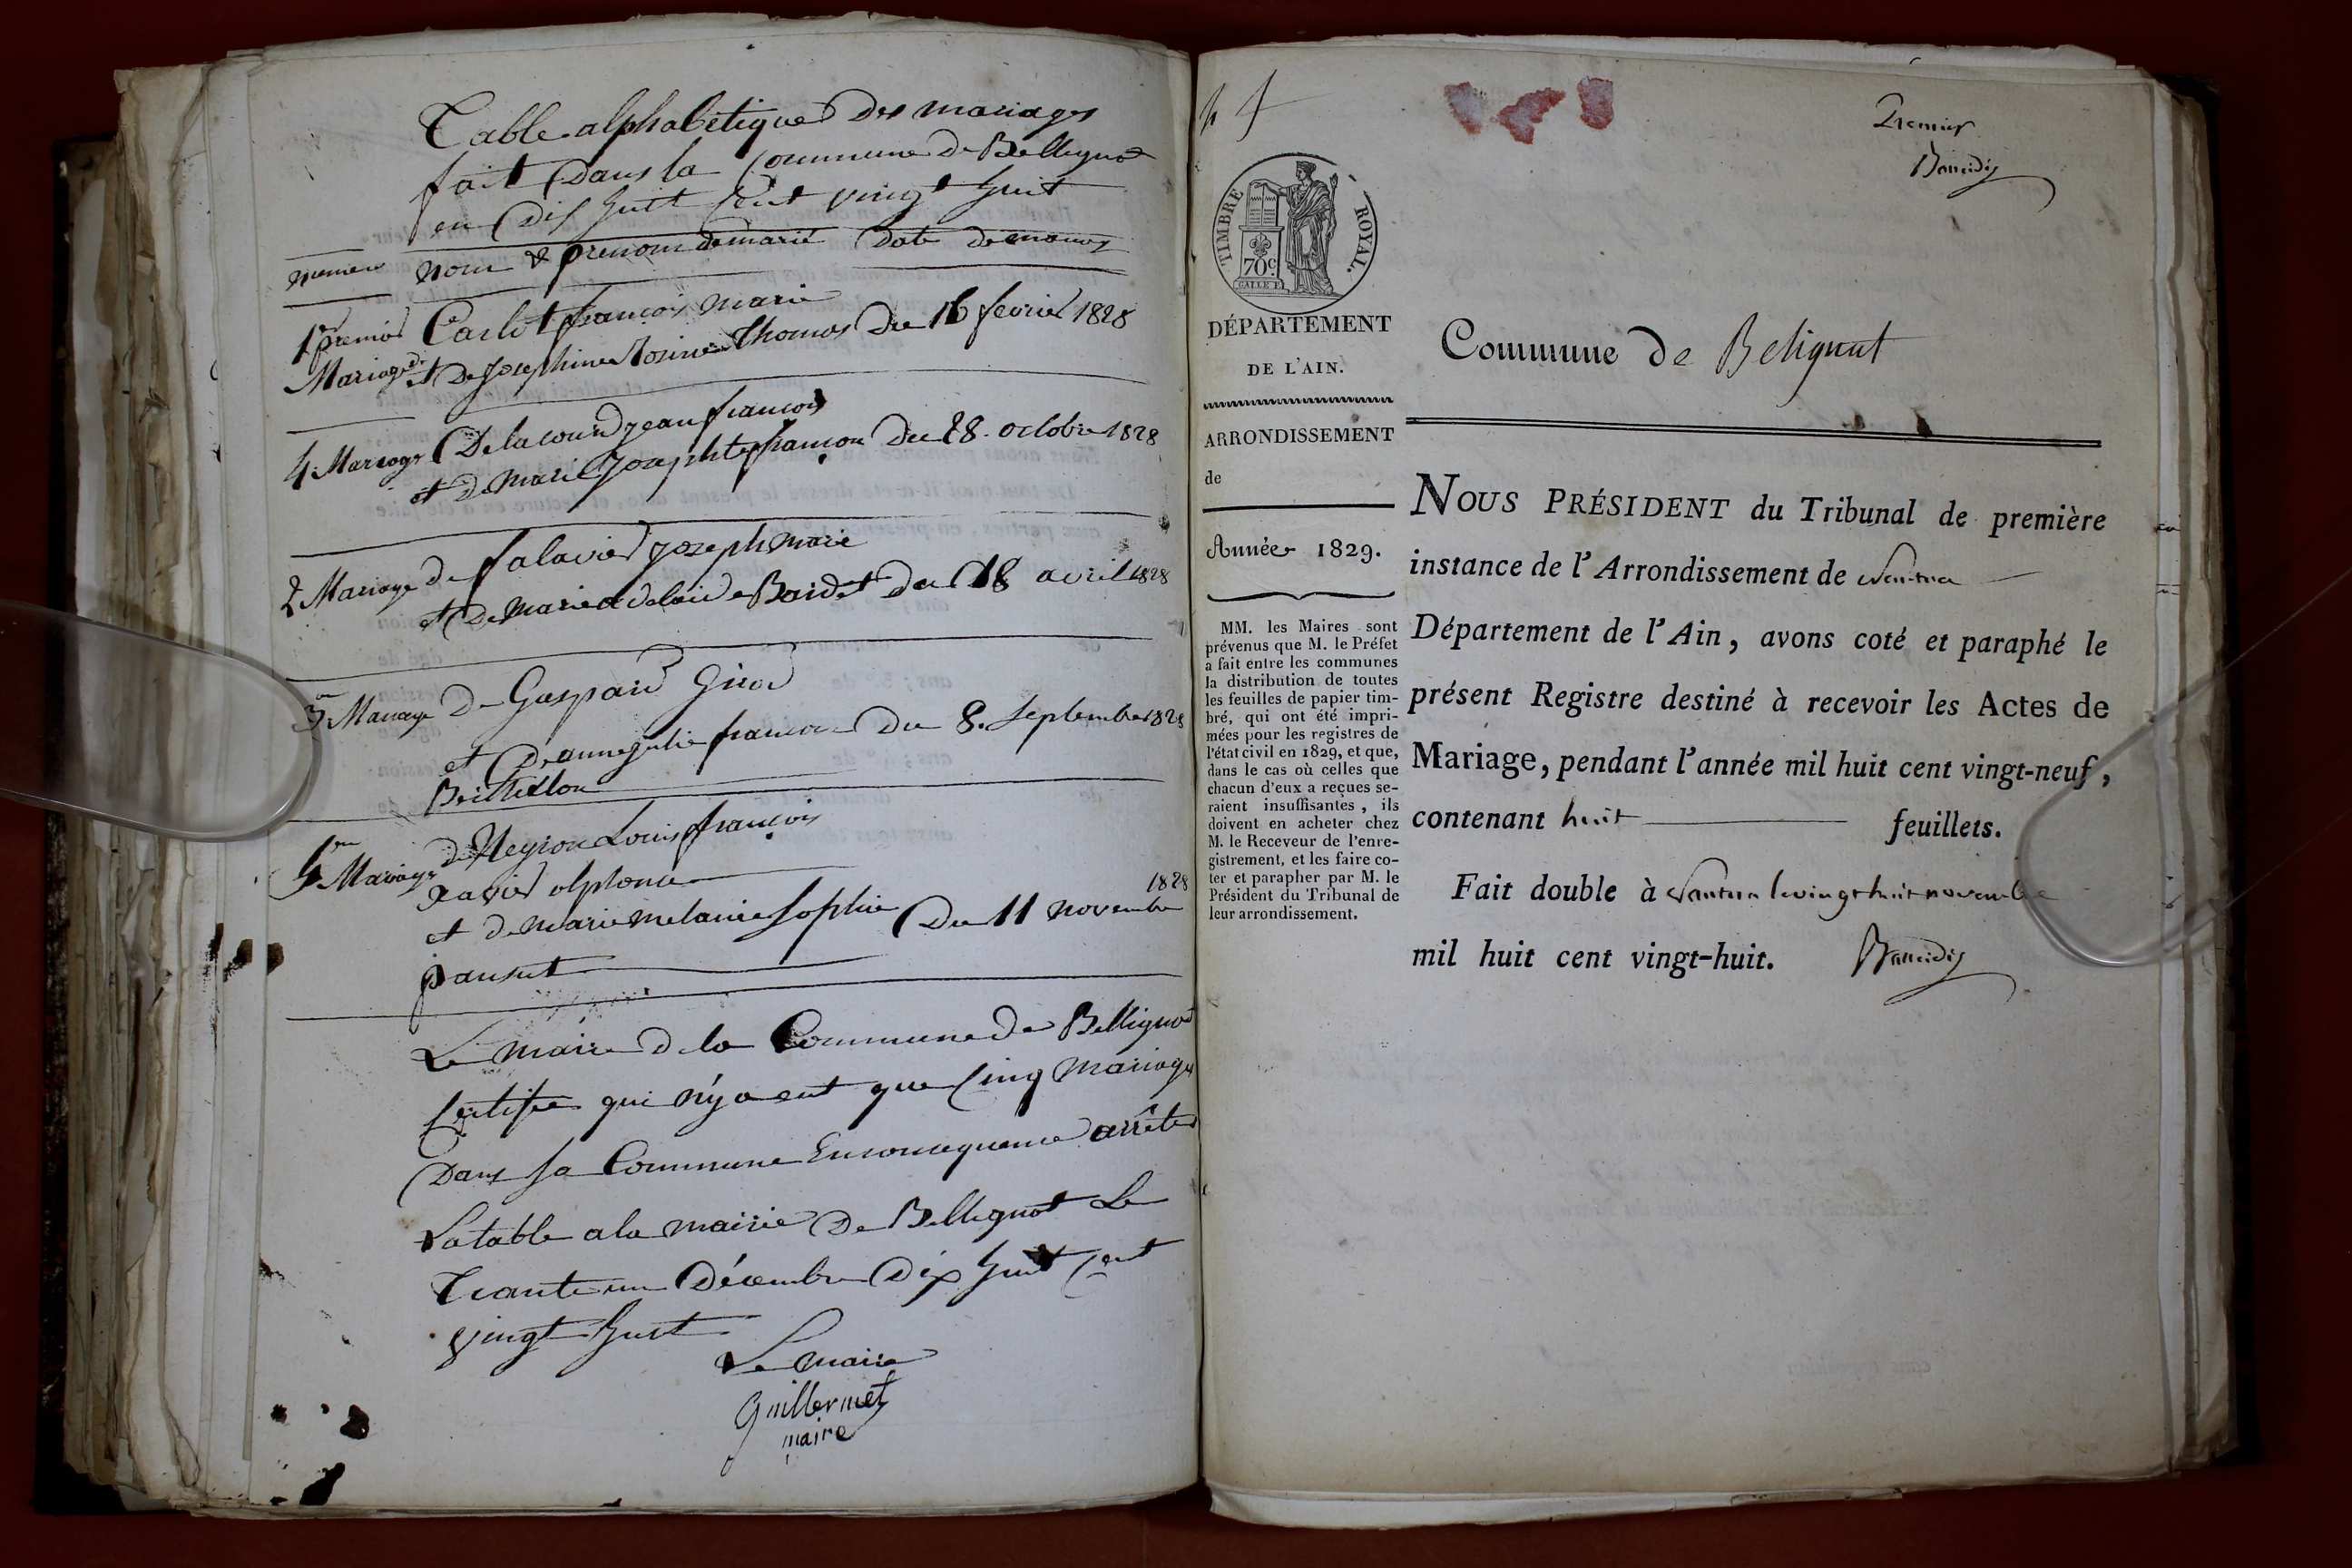 Table alphabétique des mariages
fait Dans la Commune de Bellignat
en Dix huit Cent vingt huit
numero nom & prenom de marié Date de
1 premier Carlot françois marie
Mariage de et De Josephine Rosine Thomas Du 16 fevrier 1828
4 Mariage Delacour jean françois
et de marie Josephte françoise Du 28 octobre 1828
2 Mariage de falavier joseph marie
et De marie adelaide Baidet du 18 avril 1828
3 Mariage De Gaspard Girod
et D'anne julie francoise Du 8. Septembre 1828
5 Mariage de Neyron Louis françois
Xavier alphonse
1828
et de marie melanie Sophie Du 11 novembre
jansut
Le maire de la Commune De Bellignat
Certifie qui n'y a eut que Cinq Mariages
Dans sa Commune En consequence arrête
La table a la mairie De Bellignat Le
Trante un Décembre Dix huit Cent
vingt huit
Le maire
Guillermet
maire
Premier
TIMBRE ROYAL.
70c
DÉPARTEMENT
DE L'AIN.
ARRONDISSEMENT
de
Année 1829.
MM. les Maires sont
prévenus que M. le Préfet
a fait entre les communes
la distribution de toutes
les feuilles de papier tim-
bré, qui ont été impri-
mées pour les registres de
l'état civil en 1829, et que,
dans le cas où celles que
chacun d'eux a reçues se-
raient insuffisantes, ils
doivent en acheter chez
M. le Receveur de l'enre-
gistrement, et les faire co-
ter et parapher par M. le
Président du Tribunal de
leur arrondissement.
Commune de Belignat
NOUS PRÉSIDENT du Tribunal de première
instance de l'Arrondissement de Nantua
Département de l'Ain, avons coté et paraphé le
présent Registre destiné à recevoir les Actes de
Mariage, pendant l'année mil huit cent vingt-neuf,
contenant huit feuillets.
Fait double à Nantua le vingt huit novembre
mil huit cent vingt-huit.